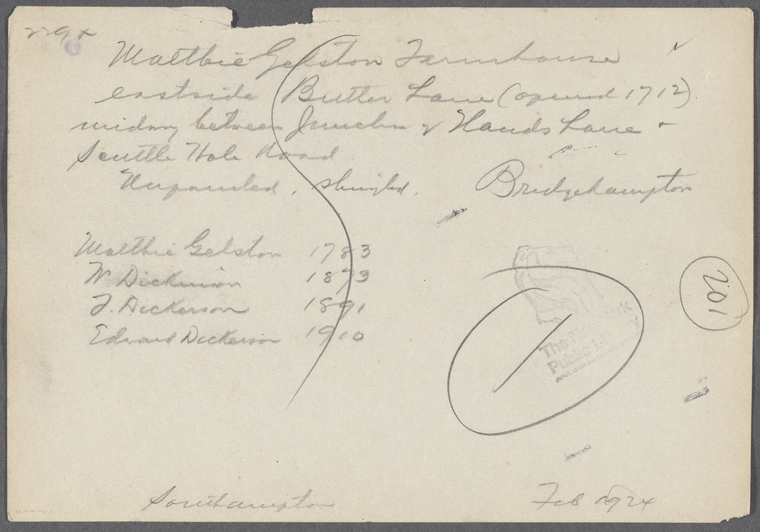 Maltbie Gelston Farmhouse
eastside Butter Lane (opened 1712)
midway between Junction of Hands Lane +
Scuttle Hole Road
Unpainted, shingled. Bridgehampton
Maltbie Gelston 1783
W. Dickinson 1873
J. Dickerson 1891
Edward Dickerson 1910
201
The New York
Public
Southampton Feb 1924